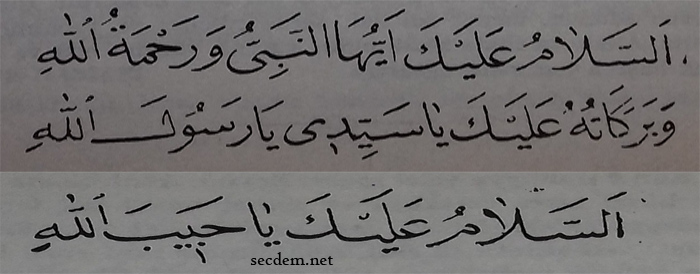 اَلسَّلَامُ عَلَيْكَ اَيُّهَا النَّبِىُّ وَرَحْمَةُ اللّٰهِ
وَبَرَكَاتُهُ عَلَيْكَ يَا سَيِّدِى يَا رَسُولَ اللّٰهِ
اَلسَّلَامُ عَلَيْكَ يَا حَبِيبَ اللّٰهِ
secdem.net